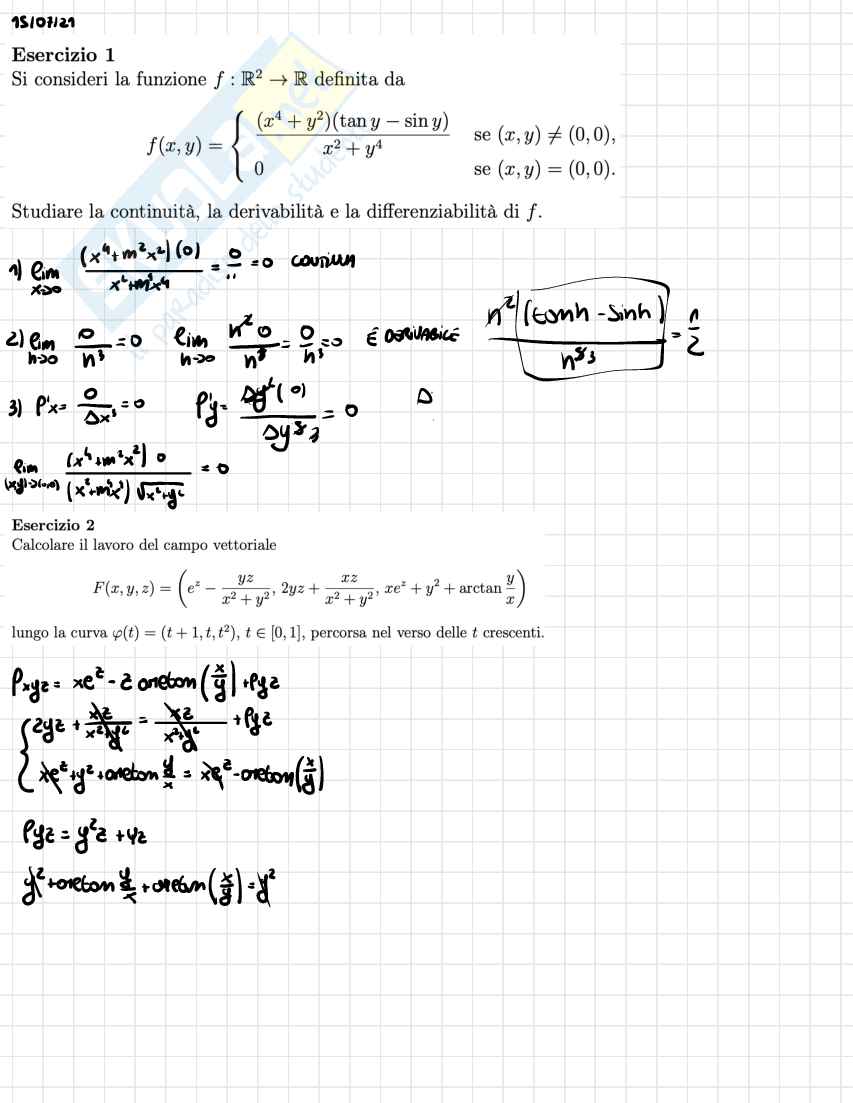 15/07/21
Esercizio 1
Si consideri la funzione f : ℝ² → ℝ definita da
f(x, y) = { (x⁴ + y²)(tan y − sin y) / (x² + y⁴) se (x, y) ≠ (0, 0),
0 se (x, y) = (0, 0).
Studiare la continuità, la derivabilità e la differenziabilità di f.
1) lim x→0 (x⁴+m²x²)(0) / = 0/.. = 0
2) lim h→0 0/h³ = 0 lim h→0 h² 0 / = 0/h³ = 0 È DERIVABILE h² (tanh - sinh) / = 1/2
3) f'x = 0/Δx³ = 0 f'y = Δy²(0) / = 0 Δ
lim (xy)→(0,0) (x⁴+m²x²) 0 / √x²+y² = 0
Esercizio 2
Calcolare il lavoro del campo vettoriale
F(x, y, z) = (e^z − yz/(x² + y²), 2yz + xz/(x² + y²), xe^z + y² + arctan y/x)
lungo la curva φ(t) = (t + 1, t, t²), t ∈ [0, 1], percorsa nel verso delle t crescenti.
fxyz = xe^z - z arctan (x/y) + fyz
{ 2yz + xz/(x²+y²) = xz/(x²+y²) + fyz
xe^z + y² + arctan y/x = xe^z - arctan (x/y)
fyz = y²z + yz
y² + arctan y/x + arctan (x/y) = y²